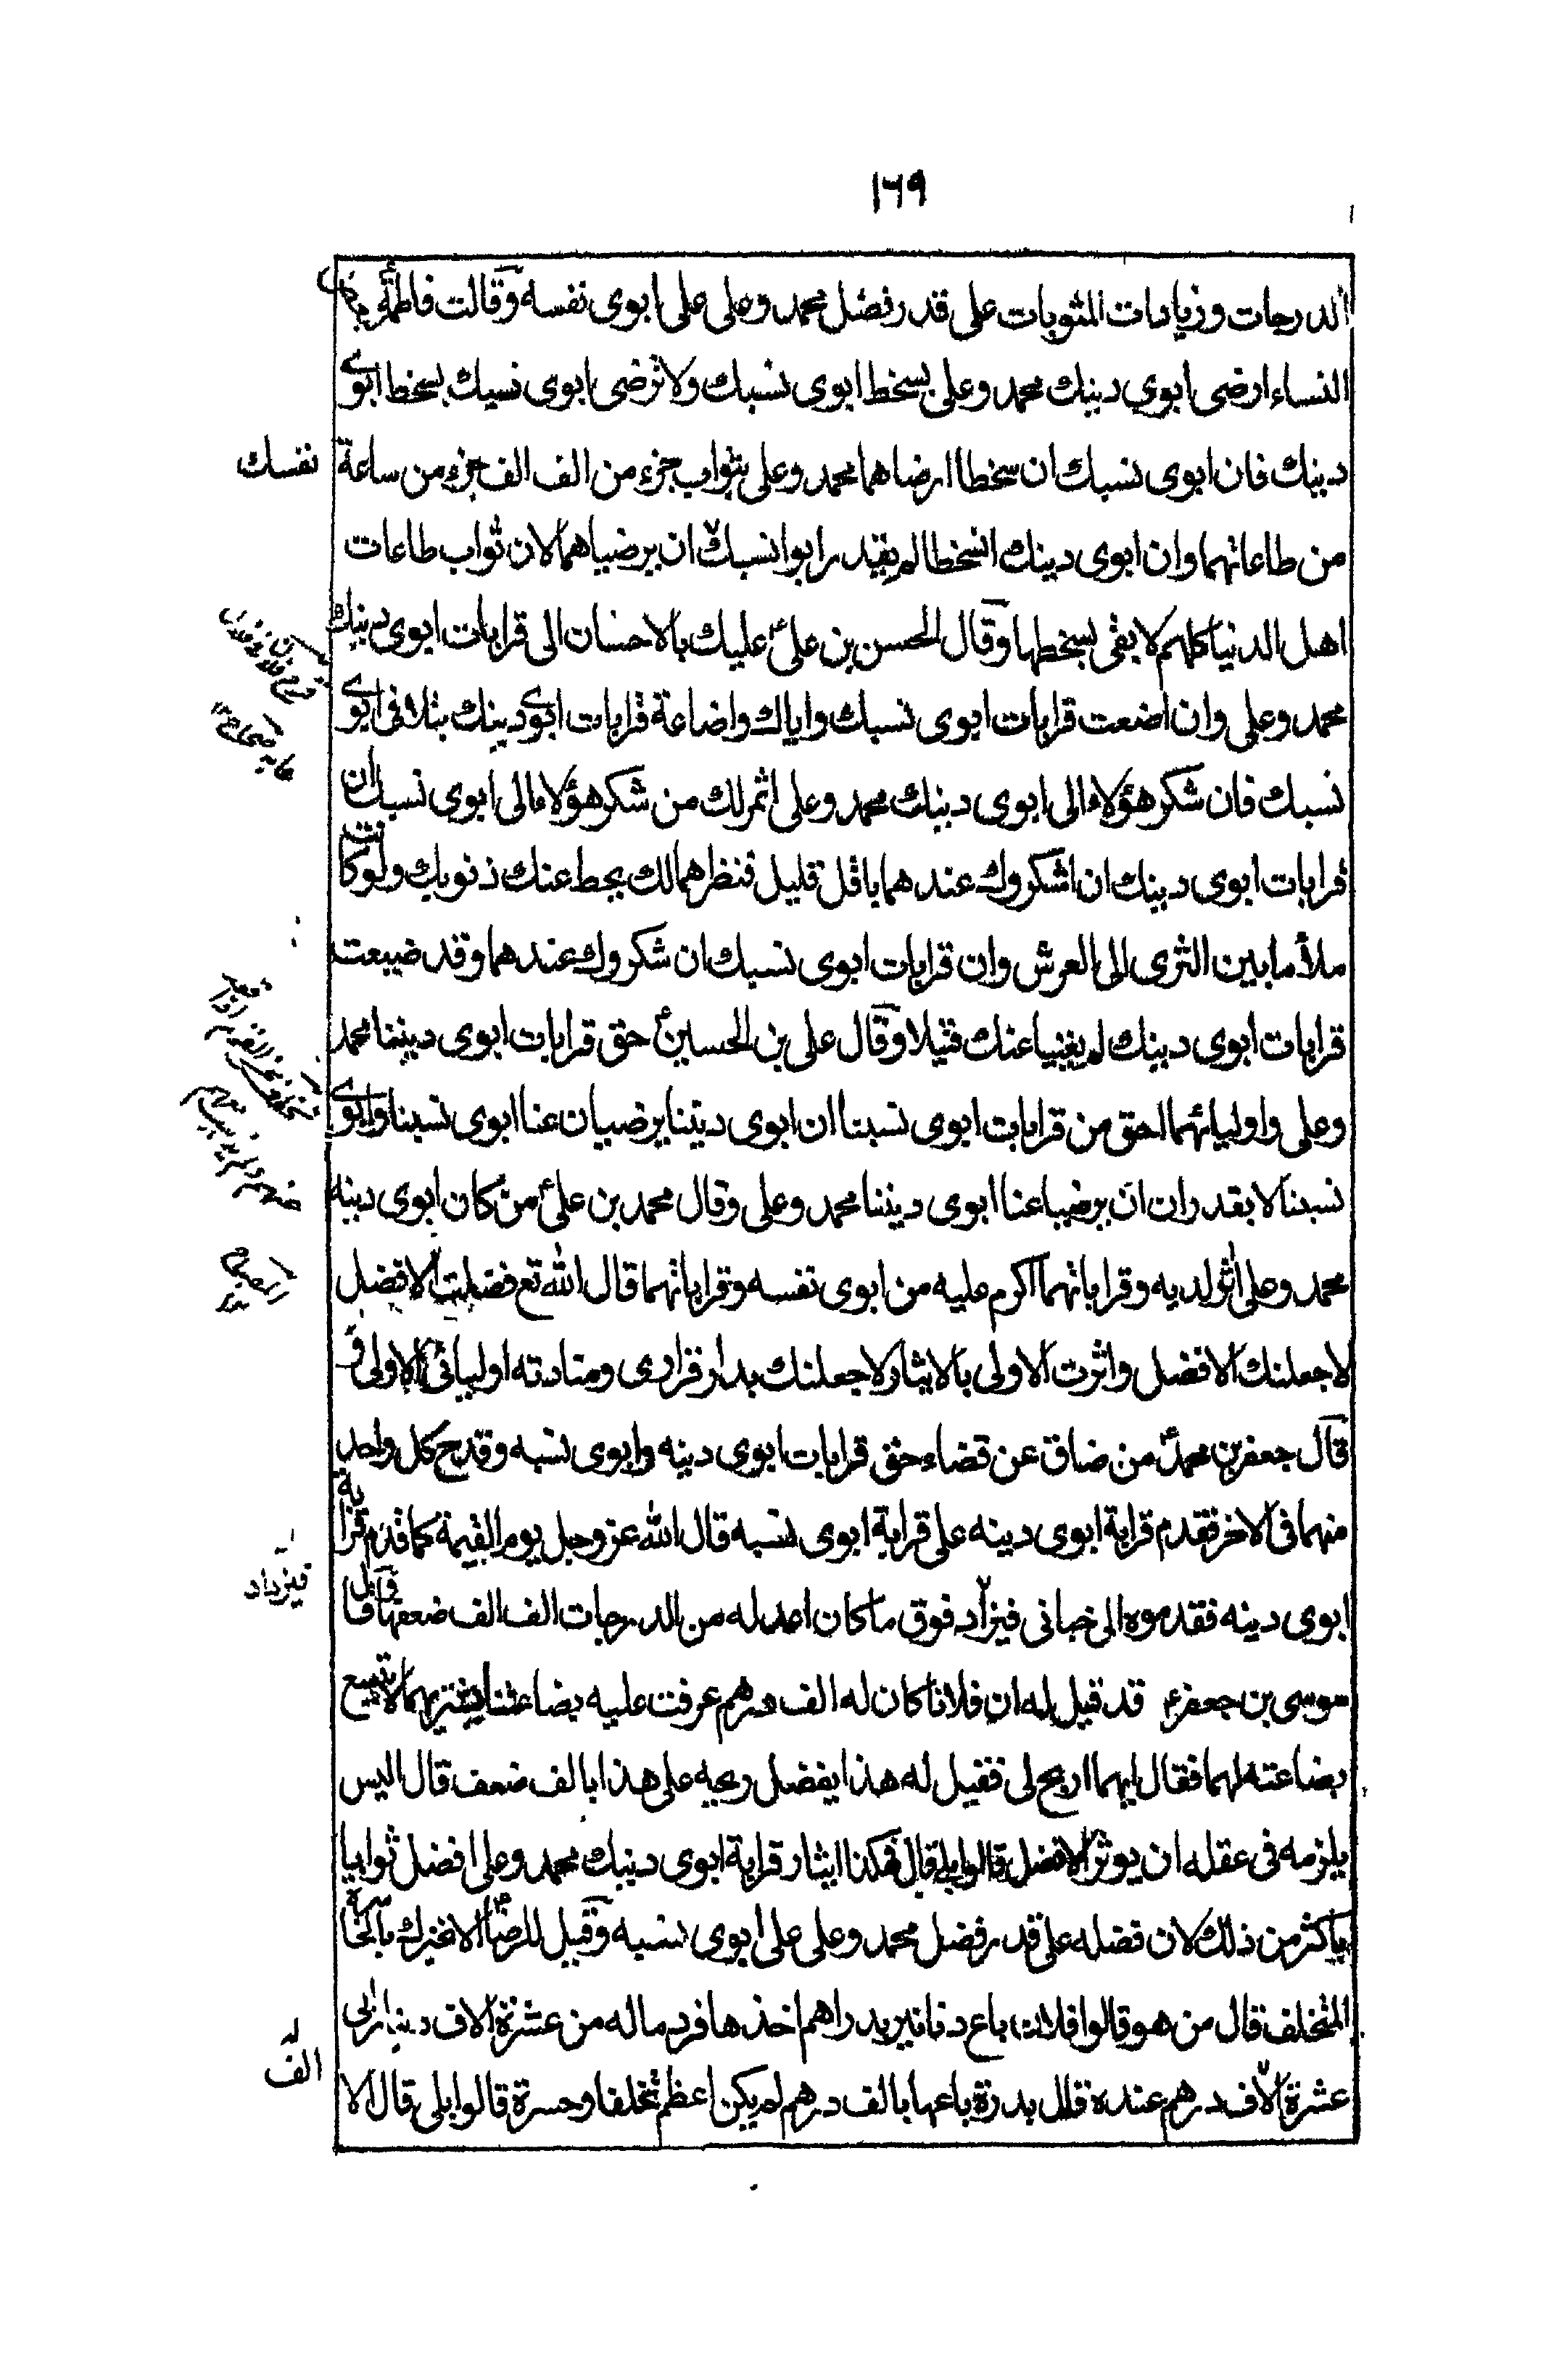 ١٦٩
الدرجات وزيادات المثوبات على قدر فضل محمد وعلى على ابوى نفسه وقالت فاطمة ع
النساء ارضى ابوي دينك محمد وعلى بسخط ابوى نسبك ولا ترضى ابوى نسبك بسخط ابوى
دينك فان ابوى نسبك ان سخطا ارضاهما محمد وعلى بثواب جزء من الف الف جزء من ساعة
نفسك
من طاعاتهما وان ابوى دينك انسخطا لم يقدر ابوا نسبك ان يرضياهما لان ثواب طاعات
اهل الدنيا كلهم لا يفى بسخطها وقال الحسن بن على ع عليك بالاحسان الى قرابات ابوى دينك
محمد وعلى وان اضعت قرابات ابوى نسبك واياك واضاعة قرابات ابوى دينك بتلافى ابوى
نسبك فان شكر هؤلاء الى ابوى دينك محمد وعلى اثمر لك من شكر هؤلاء الى ابوى نسبك ان
قرابات ابوى دينك ان اشكروك عندهما باقل قليل فنظرهما لك يحط عنك ذنوبك ولو كانت
ملأ ما بين الثرى الى العرش وان قرابات ابوى نسبك ان شكروك عندهما وقد ضيعت
قرابات ابوى دينك لم يغنيا عنك فتيلا وقال على بن الحسين ع حق قرابات ابوى ديننا محمد
وعلى واوليائهما احق من قرابات ابوى نسبنا ان ابوى ديننا يرضيان عنا ابوى نسبنا وابوى
نسبنا لا يقدران ان يرضيا عنا ابوى ديننا محمد وعلى وقال محمد بن على ع من كان ابوى دينه
محمد وعلى اثر لديه وقراباتهما اكرم عليه من ابوى نفسه وقراباتهما قال الله تع فضلت الافضل
لاجعلنك الافضل واثرت الاولى بالايثار لاجعلنك بدار قرارى ومنادته اوليائى الاولى و
قال جعفر بن محمد ع من ضاق عن قضاء حق قرابات ابوى دينه وابوى نسبه وقدح كل واحد
منهما فى الاخر فقدم قرابة ابوى دينه على قرابة ابوى نسبه قال الله عز وجل يوم القيمة كما قدم قرابة
ابوى دينه فقدموه الى جنانى فيزاد فوق ما كان اعد له من الدرجات الف الف ضعفها وقال
فيزداد
موسى بن جعفر ع قد قيل له ان فلانا كان له الف درهم عرفت عليه بضاعتنا يشتريهما لا تتسع
بضاعته لهما فقال ايهما اربح لى فقيل له هذا يفضل ربحه على هذا بالف ضعف قال اليس
يلزمه فى عقله ان يوثر الافضل قالوا بلى قال فهكذا ايثار قرابة ابوى دينك محمد وعلى افضل ثوابا
باكثر من ذلك لان فضله على قدر فضل محمد وعلى على ابوى نسبه وقيل للرضا ع الا نخبرك بالخاسر
المتخلف قال من هو قالوا فلان باع دنانير بدراهم اخذها فرد ماله من عشرة الاف دينار الى
عشرة الاف درهم عنده قال بدرة باعها بالف درهم لم يكن اعظم تخلفا وحسرة قالوا بلى قال الا
الف